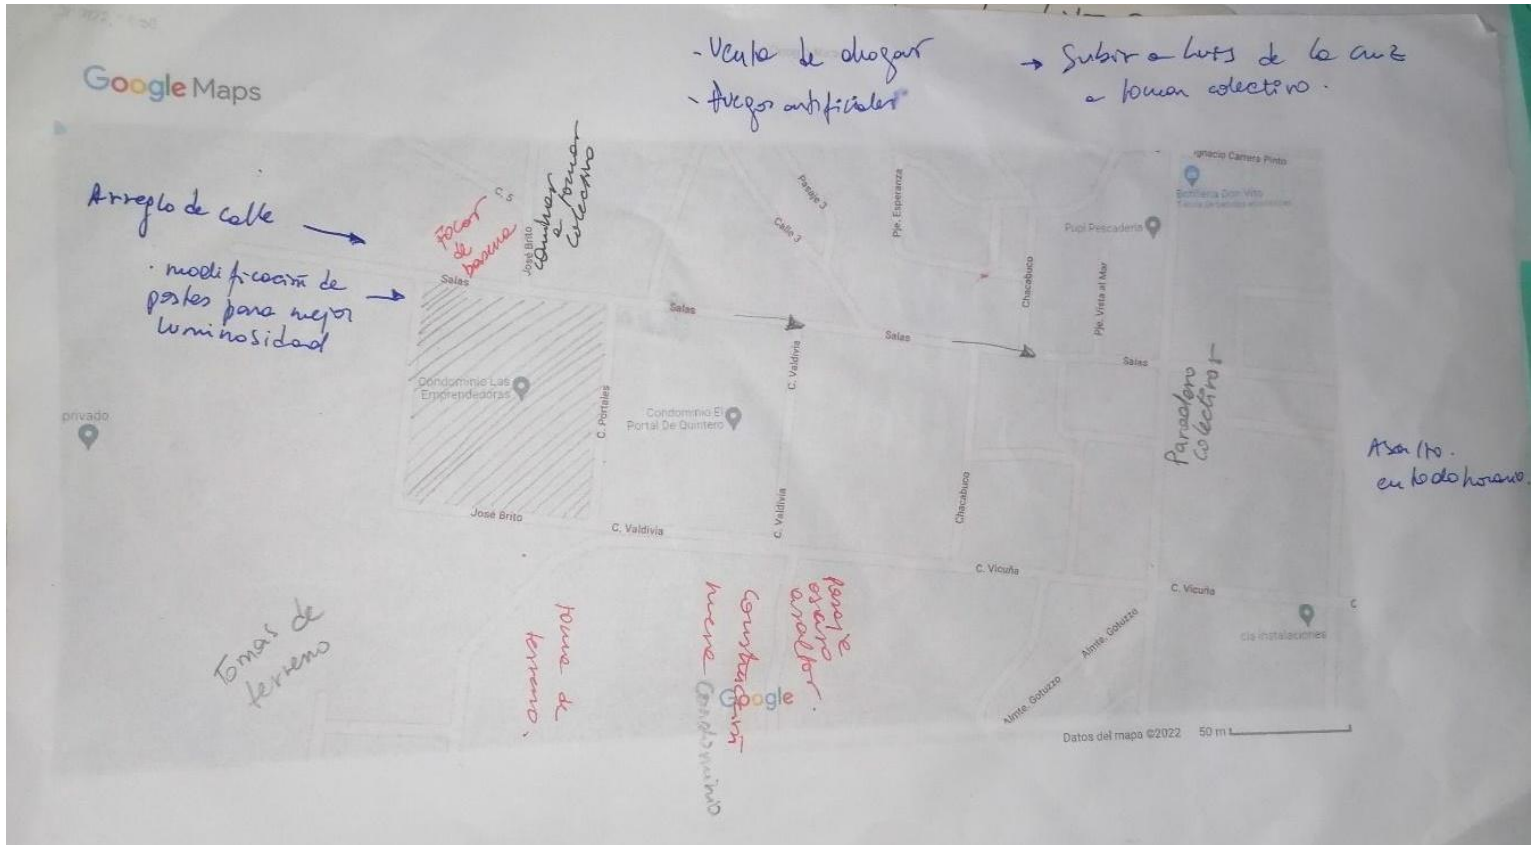 Google Maps
- Venta de drogas
- fuegos artificiales
→ Subir a Luis de la Cruz
a tomar colectivo.
Arreglo de calle
· modificación de
postes para mejor
luminosidad
focos
de
basura
caminar
a tomar
colectivo
C. 5
José Brito
Salas
Pasaje 3
Calle 3
Pje. Esperanza
Ignacio Carrera Pinto
Botillería Don Vito
Pupi Pescaderia
Chacabuco
Pje. Vista al Mar
Salas
Salas
Salas
C. Valdivia
Condominio Las
Emprendedoras
C. Portales
Condominio El
Portal De Quintero
privado
Paradero
colectivos
Asalto.
en todo horario.
José Brito
C. Valdivia
C. Valdivia
Chacabuco
C. Vicuña
C. Vicuña
C
cis instalaciones
Almte. Gotuzzo
Almte. Gotuzzo
Tomas de
terreno
toma de
terreno.
Construcción
nueva Condominio
pasaje
oscuro
asaltos.
Google
Datos del mapa ©2022
50 m